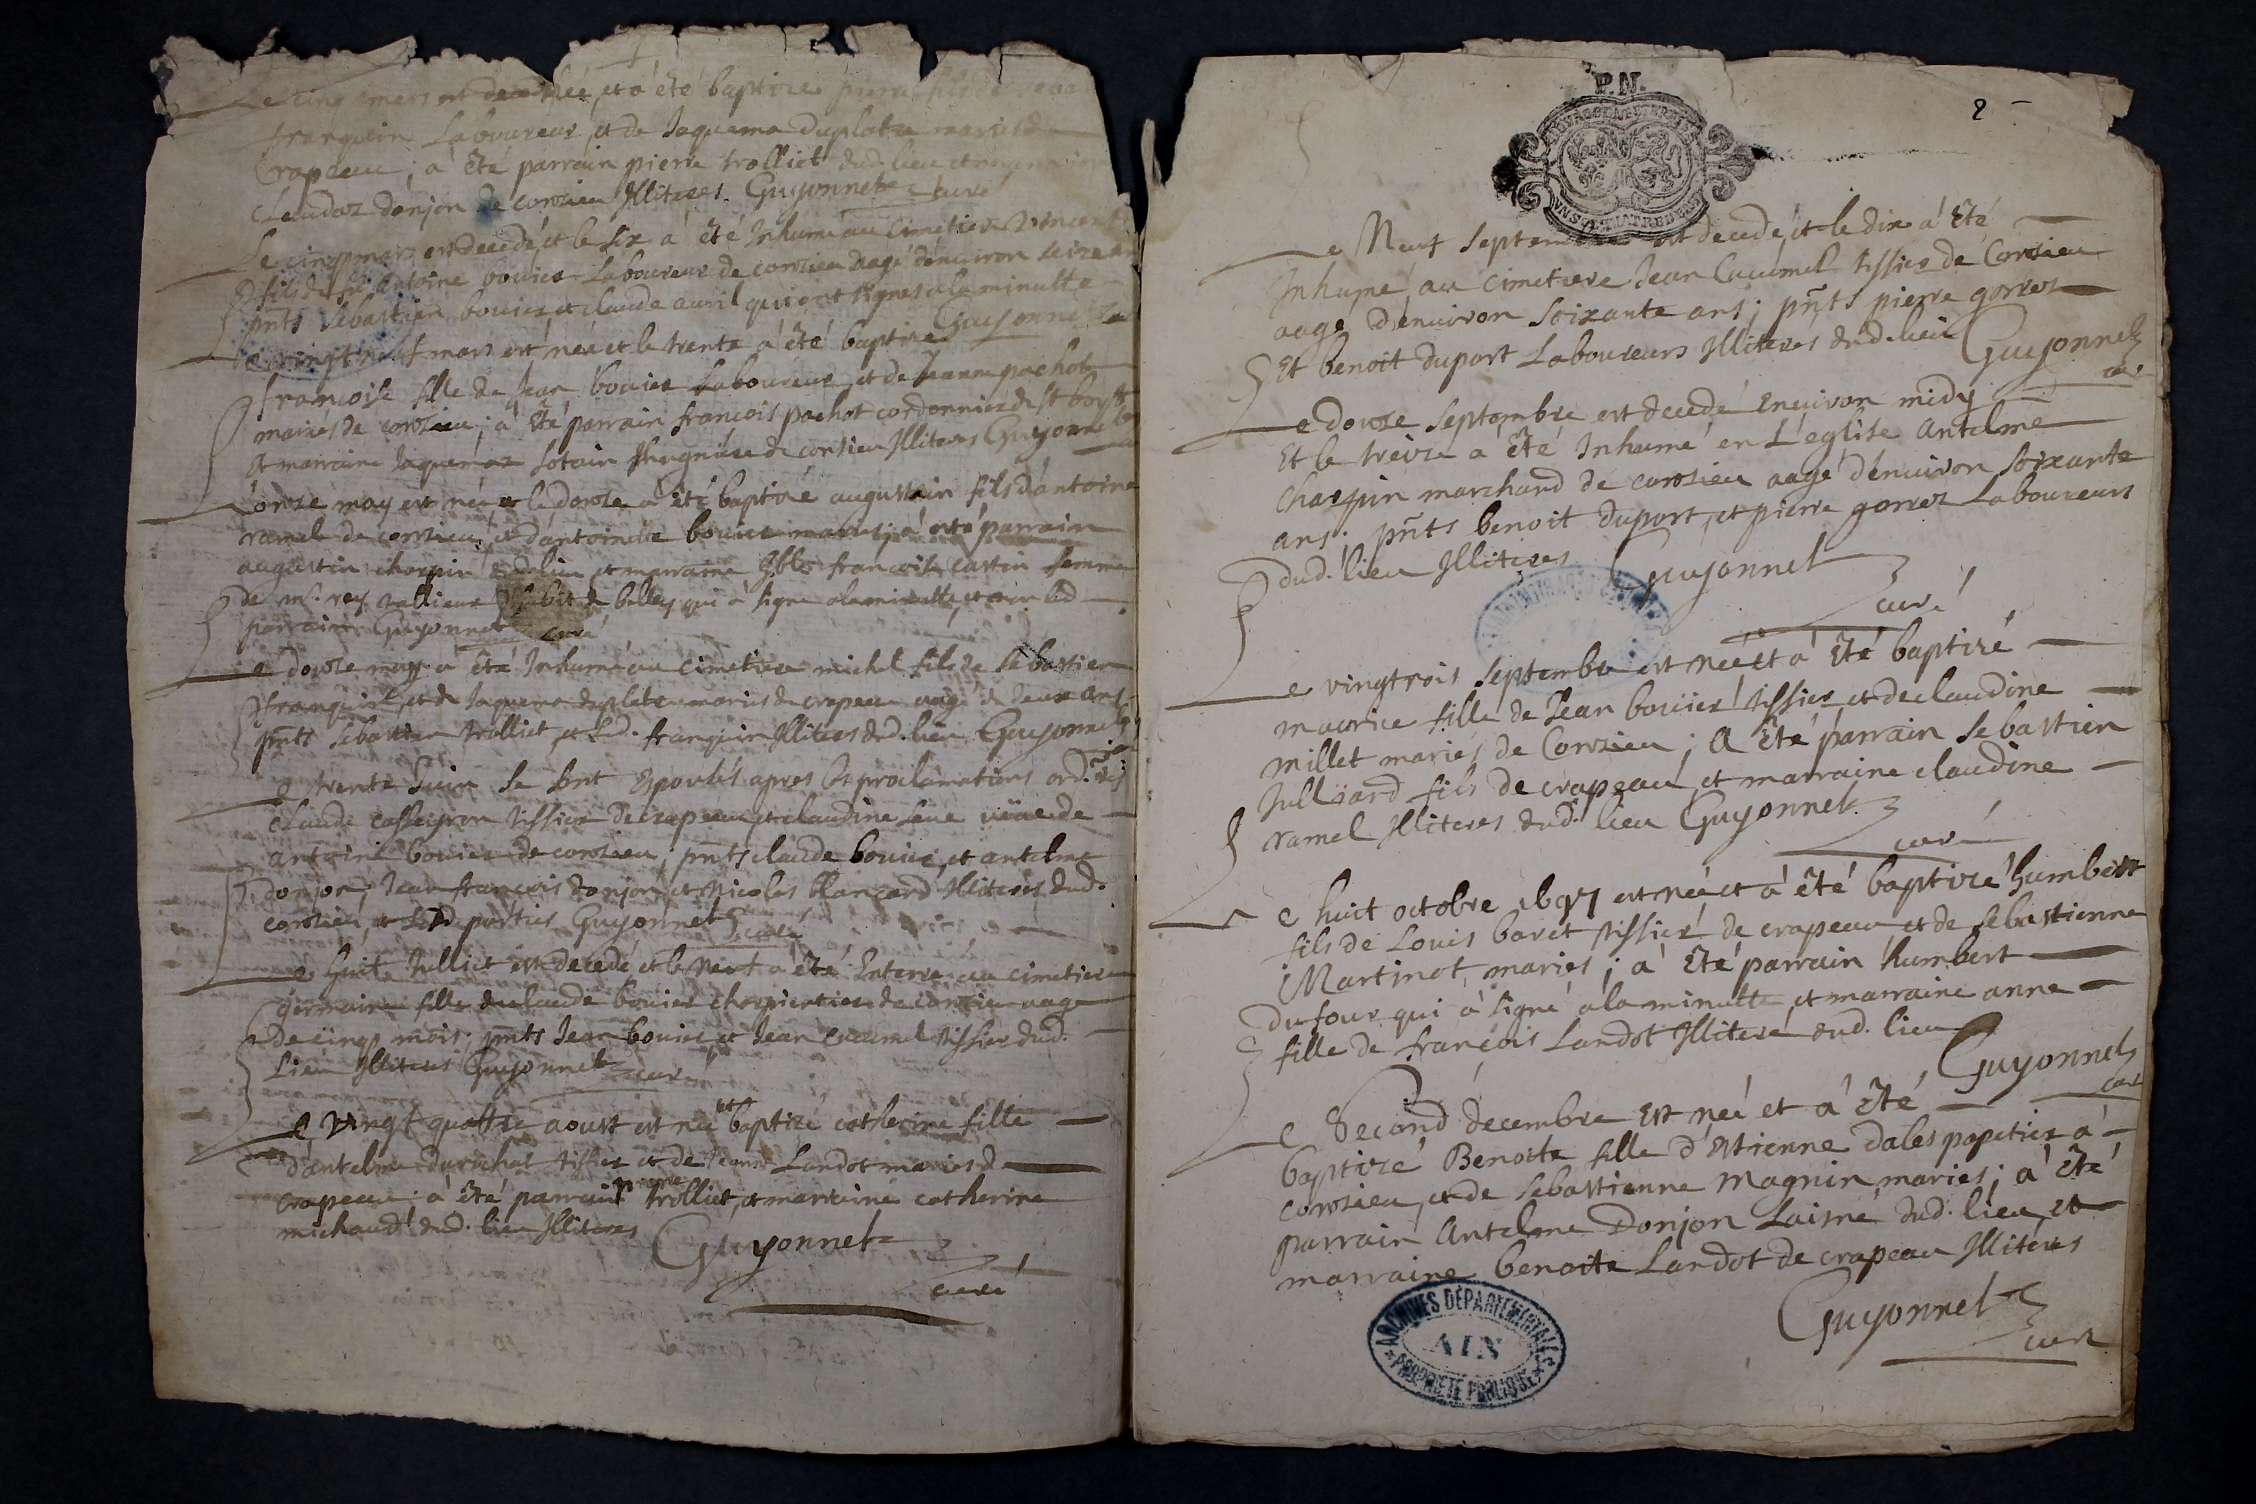 Le cinq mars est née et à été baptizé pierre fils de
franquin Laboureur et de Jaquema duplatre mariés de
Crapeau ; à été parrain pierre trolliet dud. lieu et marraine
Claudaz donjon de conzieu Illiteres. Guyonnet curé
Le cinq mars est decedé et le six à été Inhumé au Cimetiere Vincent
fils de feu Antoine bouier Laboureur de conzieu aagé d'enuiron seize ans
pñts Sebastien bouier et claude auril qui ont signes a la minutte
Guyonnet
Le vingt neuf mars est née et le trente à été baptizé
francoise fille de Jean bouier Laboureur et de Jeanne pachot
mariés de conzieu ; à été parrain francois pachot cordonnier de st boys
et marraine Jaquemaz de conzieu Illiteres Guyonnet
L'onze may est née et le douze à été baptizé augustin fils d'antoine
ramel de conzieu et d'antoinette bouier mariés ; à été parrain
augustin charpin dud. lieu et marraine francoise cartin femme
de Mr. rey de belley qui à signé a la minutte, et non led.
parrain Guyonnet curé
Le douze may à été Inhumé au cimetiere michel fils de Sebastien
franquin et de Jaquema duplatre mariés de crapeau aagé de deux ans
pñts Sebastien trolliet et led. franquin Illiteres dud. lieu Guyonnet
Le trente Juin se sont Epousés apres les proclamations ord.res
Claude casseyron tissier de crapeau et claudine veüe de
antoine bouier de conzieu, pñts claude bouier, et antelme
donjon, Jean francois donjon et Nicolas blanzard Illiteres dud.
conzieu, et parties Guyonnet curé
Le huit Julliet est decedé et le Neuf à été Enterré au cimetiere
germaine fille de claude bouier charpentier de conzieu aagé
de cinq mois, pñts Jean bouier et Jean Cucumel tissier dud.
Lieu Illiteres Guyonnet curé
Le vingt quattre aoust est née et baptizé catherine fille
d'antelme tissier et de Jeanne Landot mariés de
crapeau : à été parrain pierre trolliet, et marraine catherine
michaud dud. lieu Illiteres
Guyonnet
curé
P.N.
2
Le Neuf septembre est decedé, et le dix à été
Inhumé au cimetiere Jean Cucumel tissier de Conzieu
aagé d'enuiron soixante ans ; pñts pierre gorrez
Et benoit duport Laboureurs Illiteres dud. lieu Guyonnet
cur
Le douze septembre est decedé enuiron midy
Et le treize à été Inhumé en L'eglise Antelme
Charpin marchand de conzieu aagé d'enuiron soixante
ans. pñts benoit duport, et pierre gorrez Laboureurs
dud. lieu Illiteres Guyonnet
curé
Le vingtrois septembre est née et à été baptizé
maurice fille de Jean bouier tissier et de claudine
millet mariés de Conzieu ; à été parrain Sebastien
Julliard fils de crapeau et marraine claudine
ramel Illiteres dud. lieu Guyonnet
curé
Le huit octobre est née et à été baptizé humbert
fils de Louis baret tissier de crapeau et de sebastienne
Martinot, mariés ; à été parrain humbert
dufour qui à signé a la minutte, et marraine anne
fille de françois Landot Illiteré dud. lieu
Guyonnet
cur
Le second decembre est née et à été
baptizé Benoite fille d'Etienne dales papetier à
conzieu, et de sebastienne magnin mariés ; à été
parrain Antelme Donjon Laisné dud. lieu, et
marraine benoite Landot de crapeau Illiteres
Guyonnet
curé
ARCHIVES DÉPARTEMENTALES
AIN
PROPRIÉTÉ PUBLIQUE